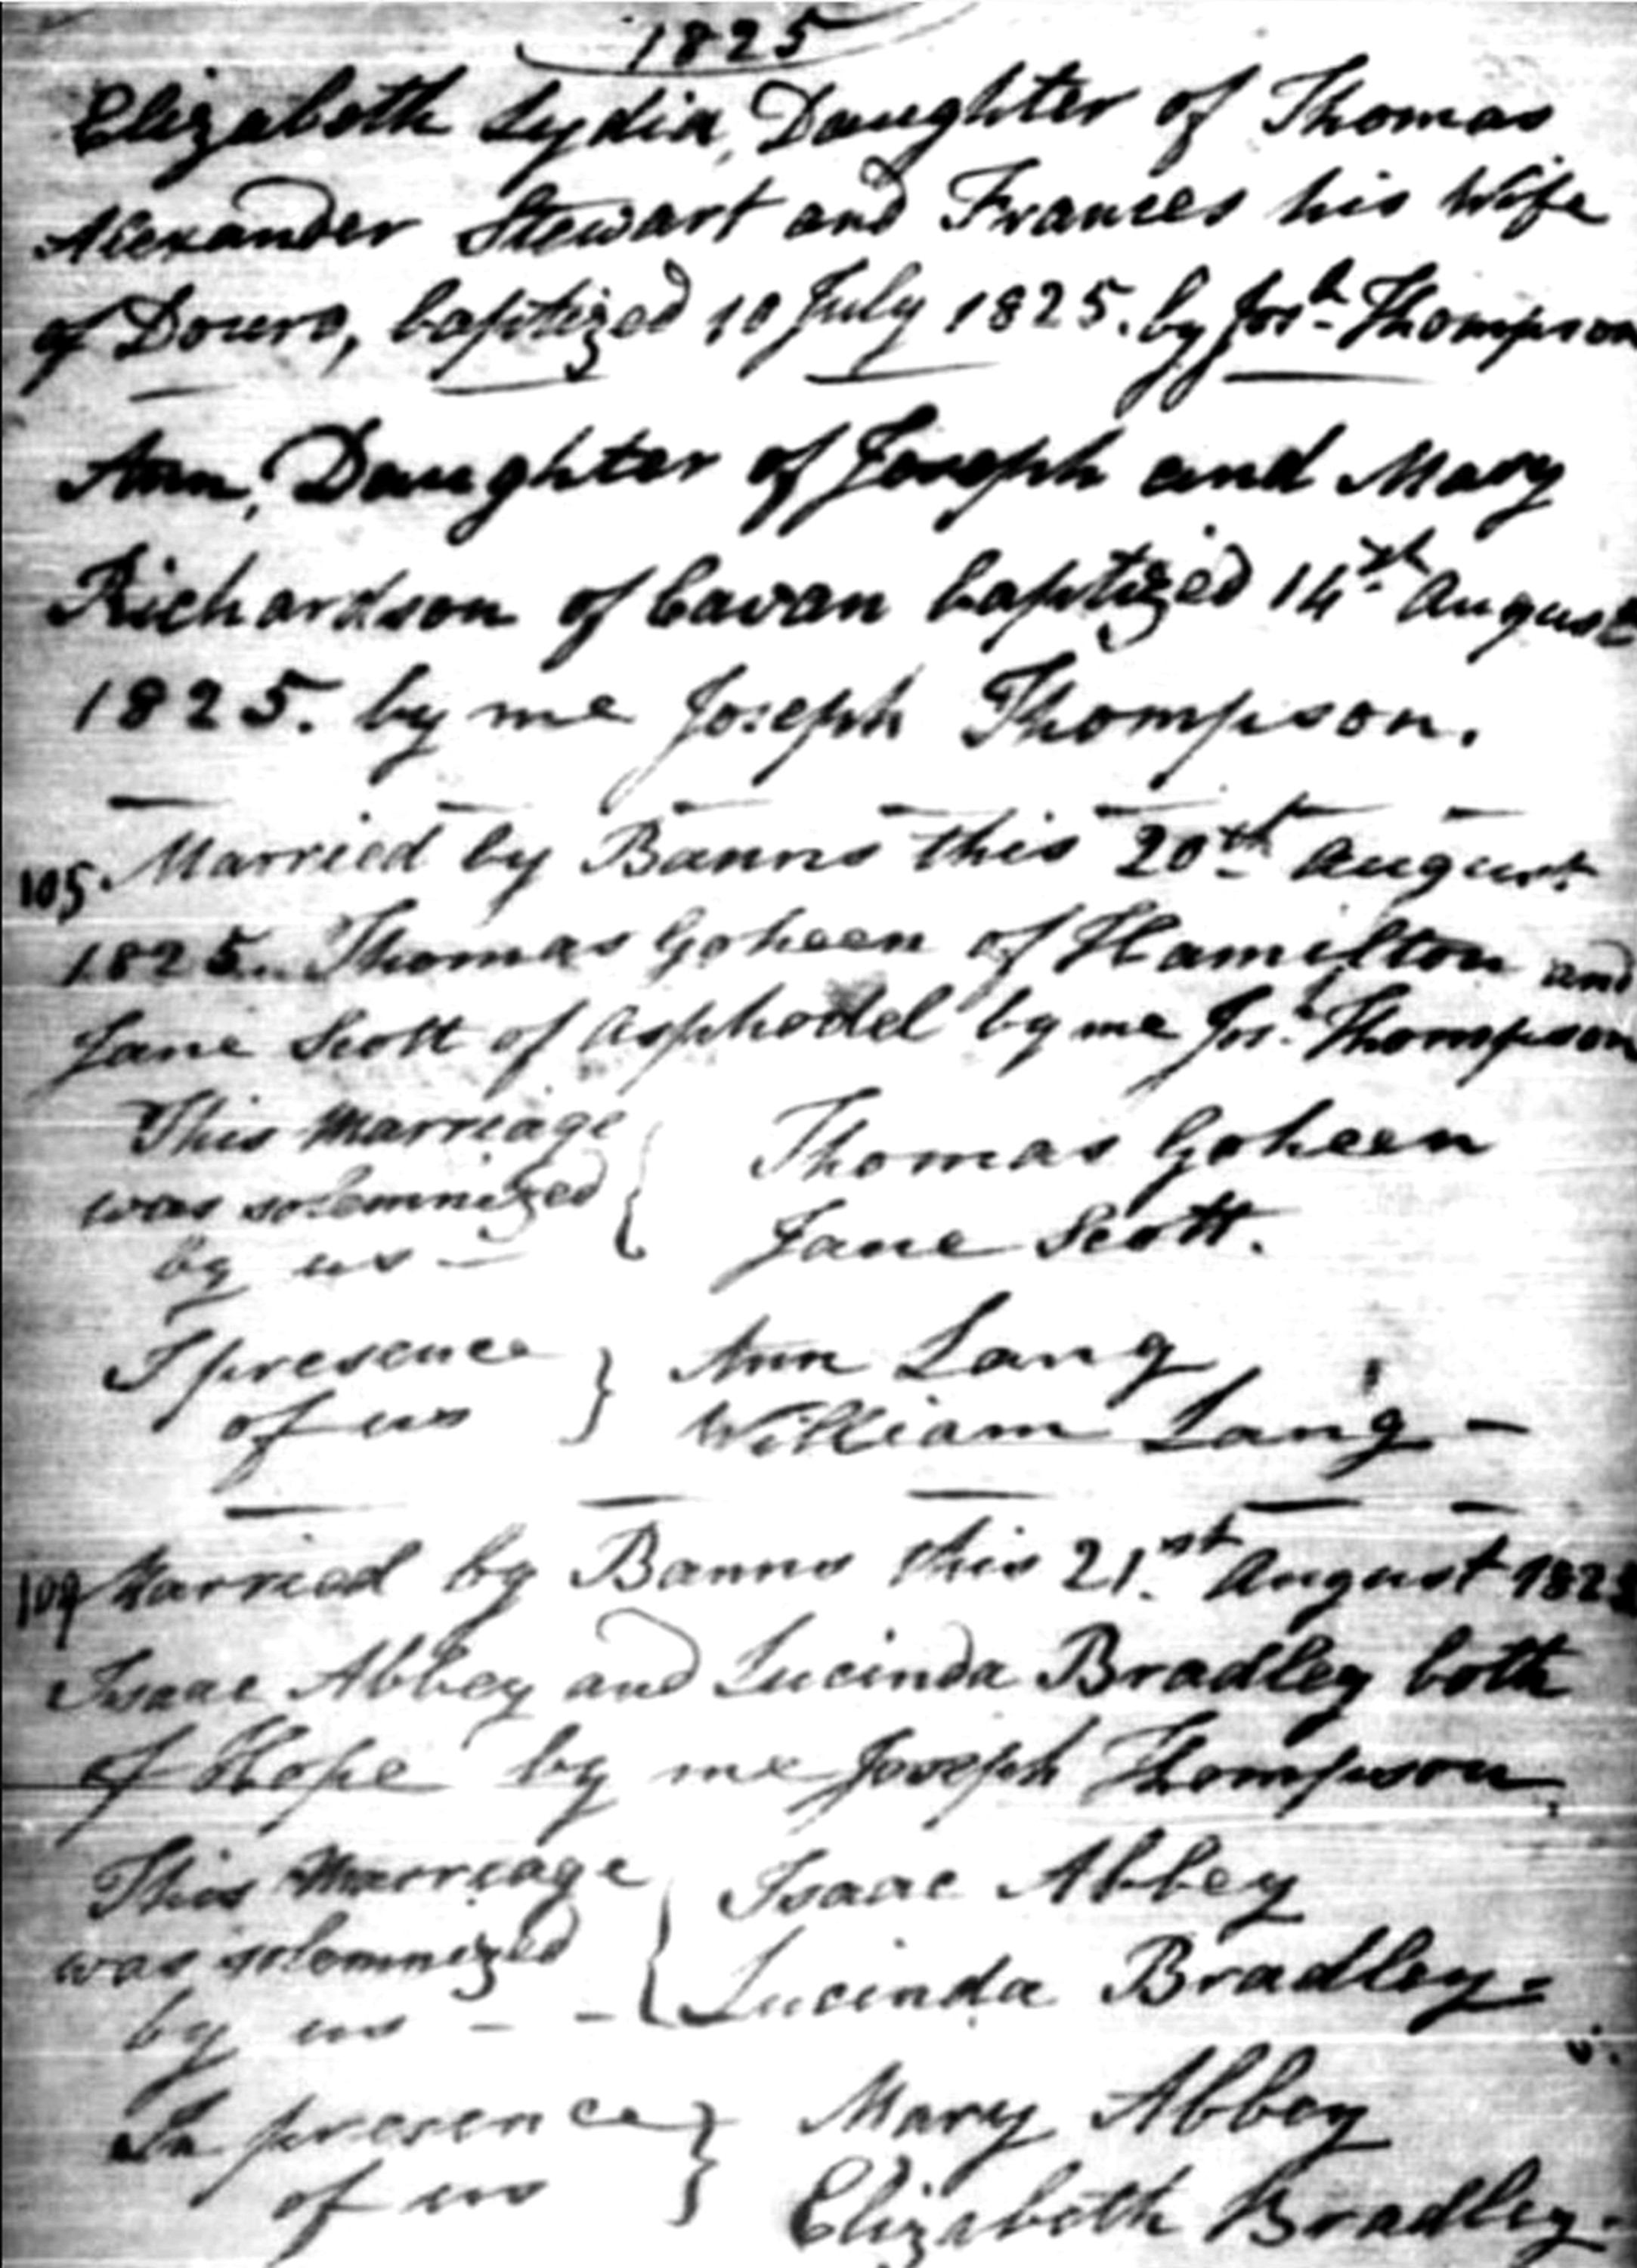 1825
Elizabeth Lydia, Daughter of Thomas
Alexander Stewart and Frances his Wife
of Douro, baptized 10 July 1825. by Josh Thompson
Ann, Daughter of Joseph and Mary
Richardson of Cavan baptized 14th August
1825. by me Joseph Thompson.
105. Married by Banns this 20th August
1825. Thomas Goheen of Hamilton and
Jane Scott of Asphodel by me Josh Thompson
This Marriage { Thomas Goheen
was solemnized
by us — Jane Scott.
I presence } Ann Lang
of us William Lang —
Married by Banns this 21st August 1825
Isaac Abbey and Lucinda Bradley both
of Hope by me Joseph Thompson.
This Marriage { Isaac Abbey
was solemnized
by us - - Lucinda Bradley-
In presence } Mary Abbey
of us Elizabeth Bradley.